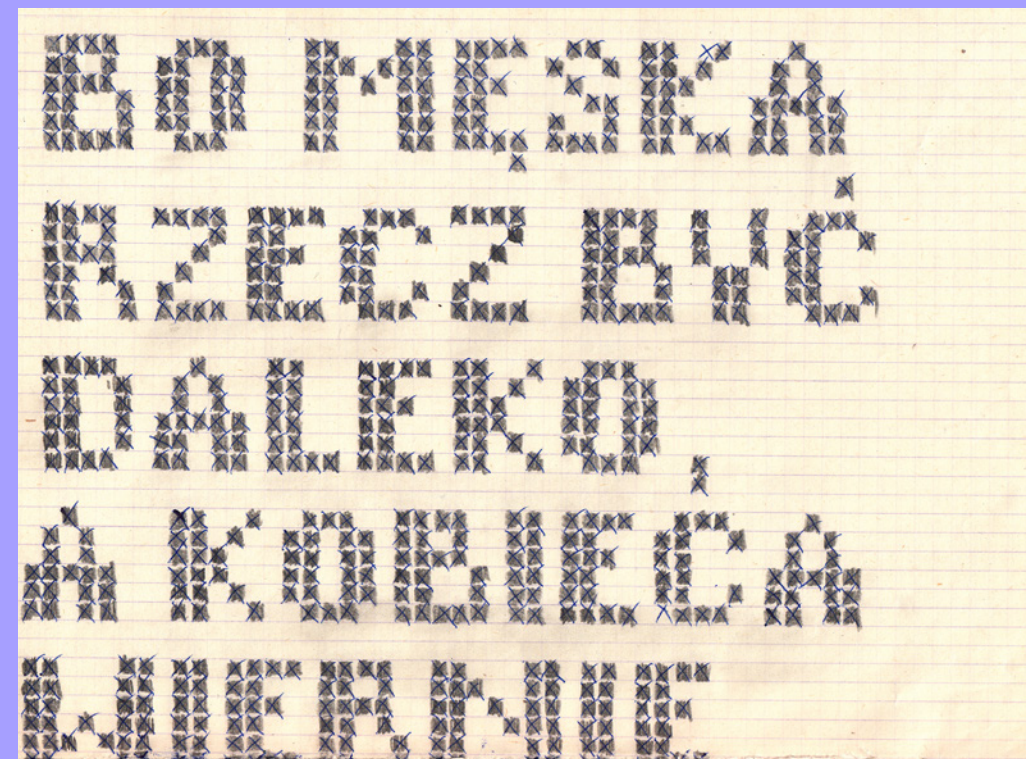 BO MĘSKA
RZECZ BYĆ
DALEKO,
A KOBIECA
WIERNIE